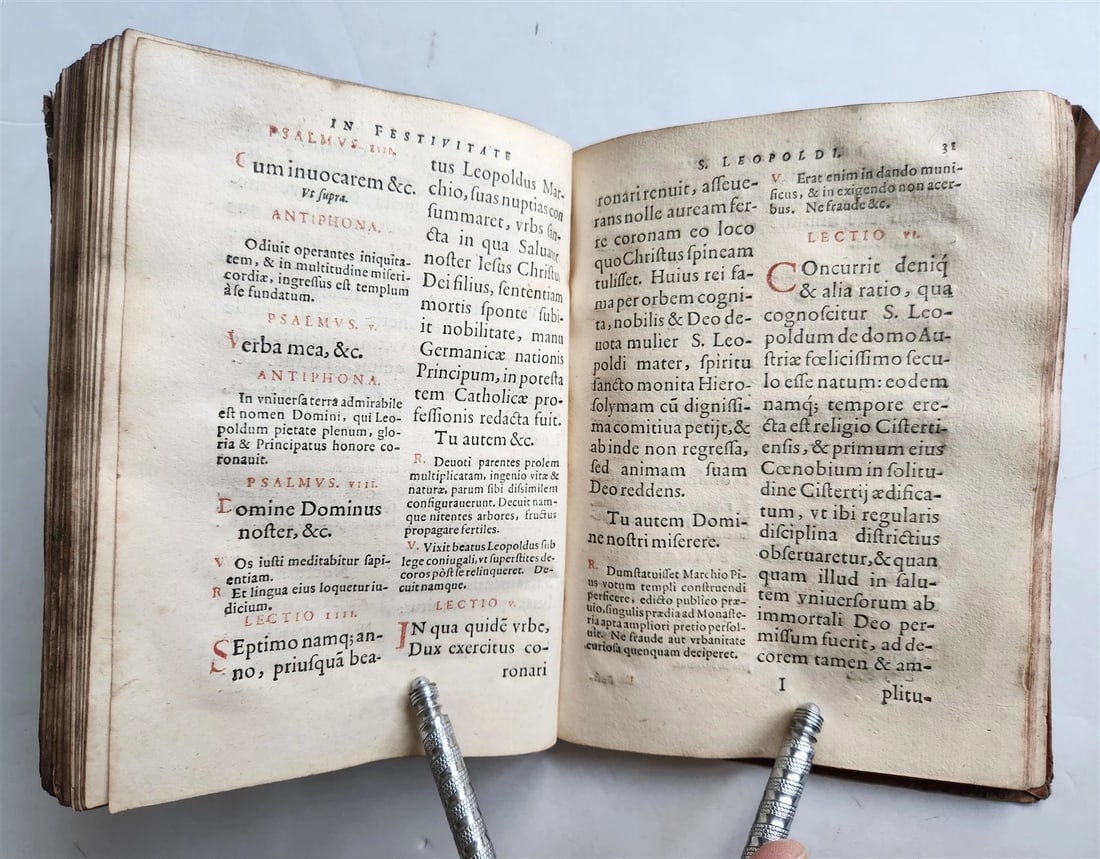 IN FESTIVITATE
PSALMVS. IIII.
Cum inuocarem &c.
Vt supra.
ANTIPHONA.
Odiuit operantes iniquita-
tem, & in multitudine miseri-
cordiæ, ingressus est templum
à se fundatum.
PSALMVS. v.
Verba mea, &c.
ANTIPHONA.
In vniuersa terra admirabile
est nomen Domini, qui Leo-
poldum pietate plenum, glo-
ria & Principatus honore co-
ronauit.
PSALMVS. VIII.
Domine Dominus
noster, &c.
V Os iusti meditabitur sapi-
entiam.
R Et lingua eius loquetur iu-
dicium.
LECTIO IIII.
SEptimo namq; an-
no, priusquā bea-
tus Leopoldus Mar-
chio, suas nuptias con
summaret, vrbs san-
cta in qua Saluator
noster Iesus Christus
Dei filius, sententiam
mortis sponte subi-
it nobilitate, manu
Germanicæ nationis
Principum, in potesta
tem Catholicæ pro-
fessionis redacta fuit.
Tu autem &c.
R. Deuoti parentes prolem
multiplicatam, ingenio vitæ &
naturæ, parum sibi dissimilem
configurauerunt. Decuit nam-
que nitentes arbores, fructus
propagare fertiles.
V. Vixit beatus Leopoldus sub
lege coniugali, vt superstites de-
coros pòst se relinqueret. De-
cuit namque.
LECTIO v.
IN qua quidē vrbe,
Dux exercitus co-
ronari
S. LEOPOLDI. 31
ronari renuit, asseue-
rans nolle auream fer-
re coronam eo loco
quo Christus spineam
tulisset. Huius rei fa-
ma per orbem cogni-
ta, nobilis & Deo de-
uota mulier S. Leo-
poldi mater, spiritu
sancto monita Hiero-
solymam cū dignissi-
ma comitiua petijt, &
ab inde non regressa,
sed animam suam
Deo reddens.
Tu autem Domi-
ne nostri miserere.
R. Dum statuisset Marchio Pi-
us votum templi construendi
perficere, edicto publico præ-
uio, singulis prædia ad Monaste-
ria apta ampliori pretio persol-
uit. Ne fraude aut vrbanitate
curiosa quenquam deciperet.
V. Erat enim in dando muni-
ficus, & in exigendo non acer-
bus. Ne fraude &c.
LECTIO VI.
COncurrit deniq́
& alia ratio, qua
cognoscitur S. Leo-
poldum de domo Au-
striæ fœlicissimo secu-
lo esse natum: eodem
namq; tempore ere-
cta est religio Cisterti-
ensis, & primum eius
Cœnobium in solitu-
dine Cistertij ædifica-
tum, vt ibi regularis
disciplina districtius
obseruaretur, & quan
quam illud in salu-
tem vniuersorum ab
immortali Deo per-
missum fuerit, ad de-
corem tamen & am-
I plitu-